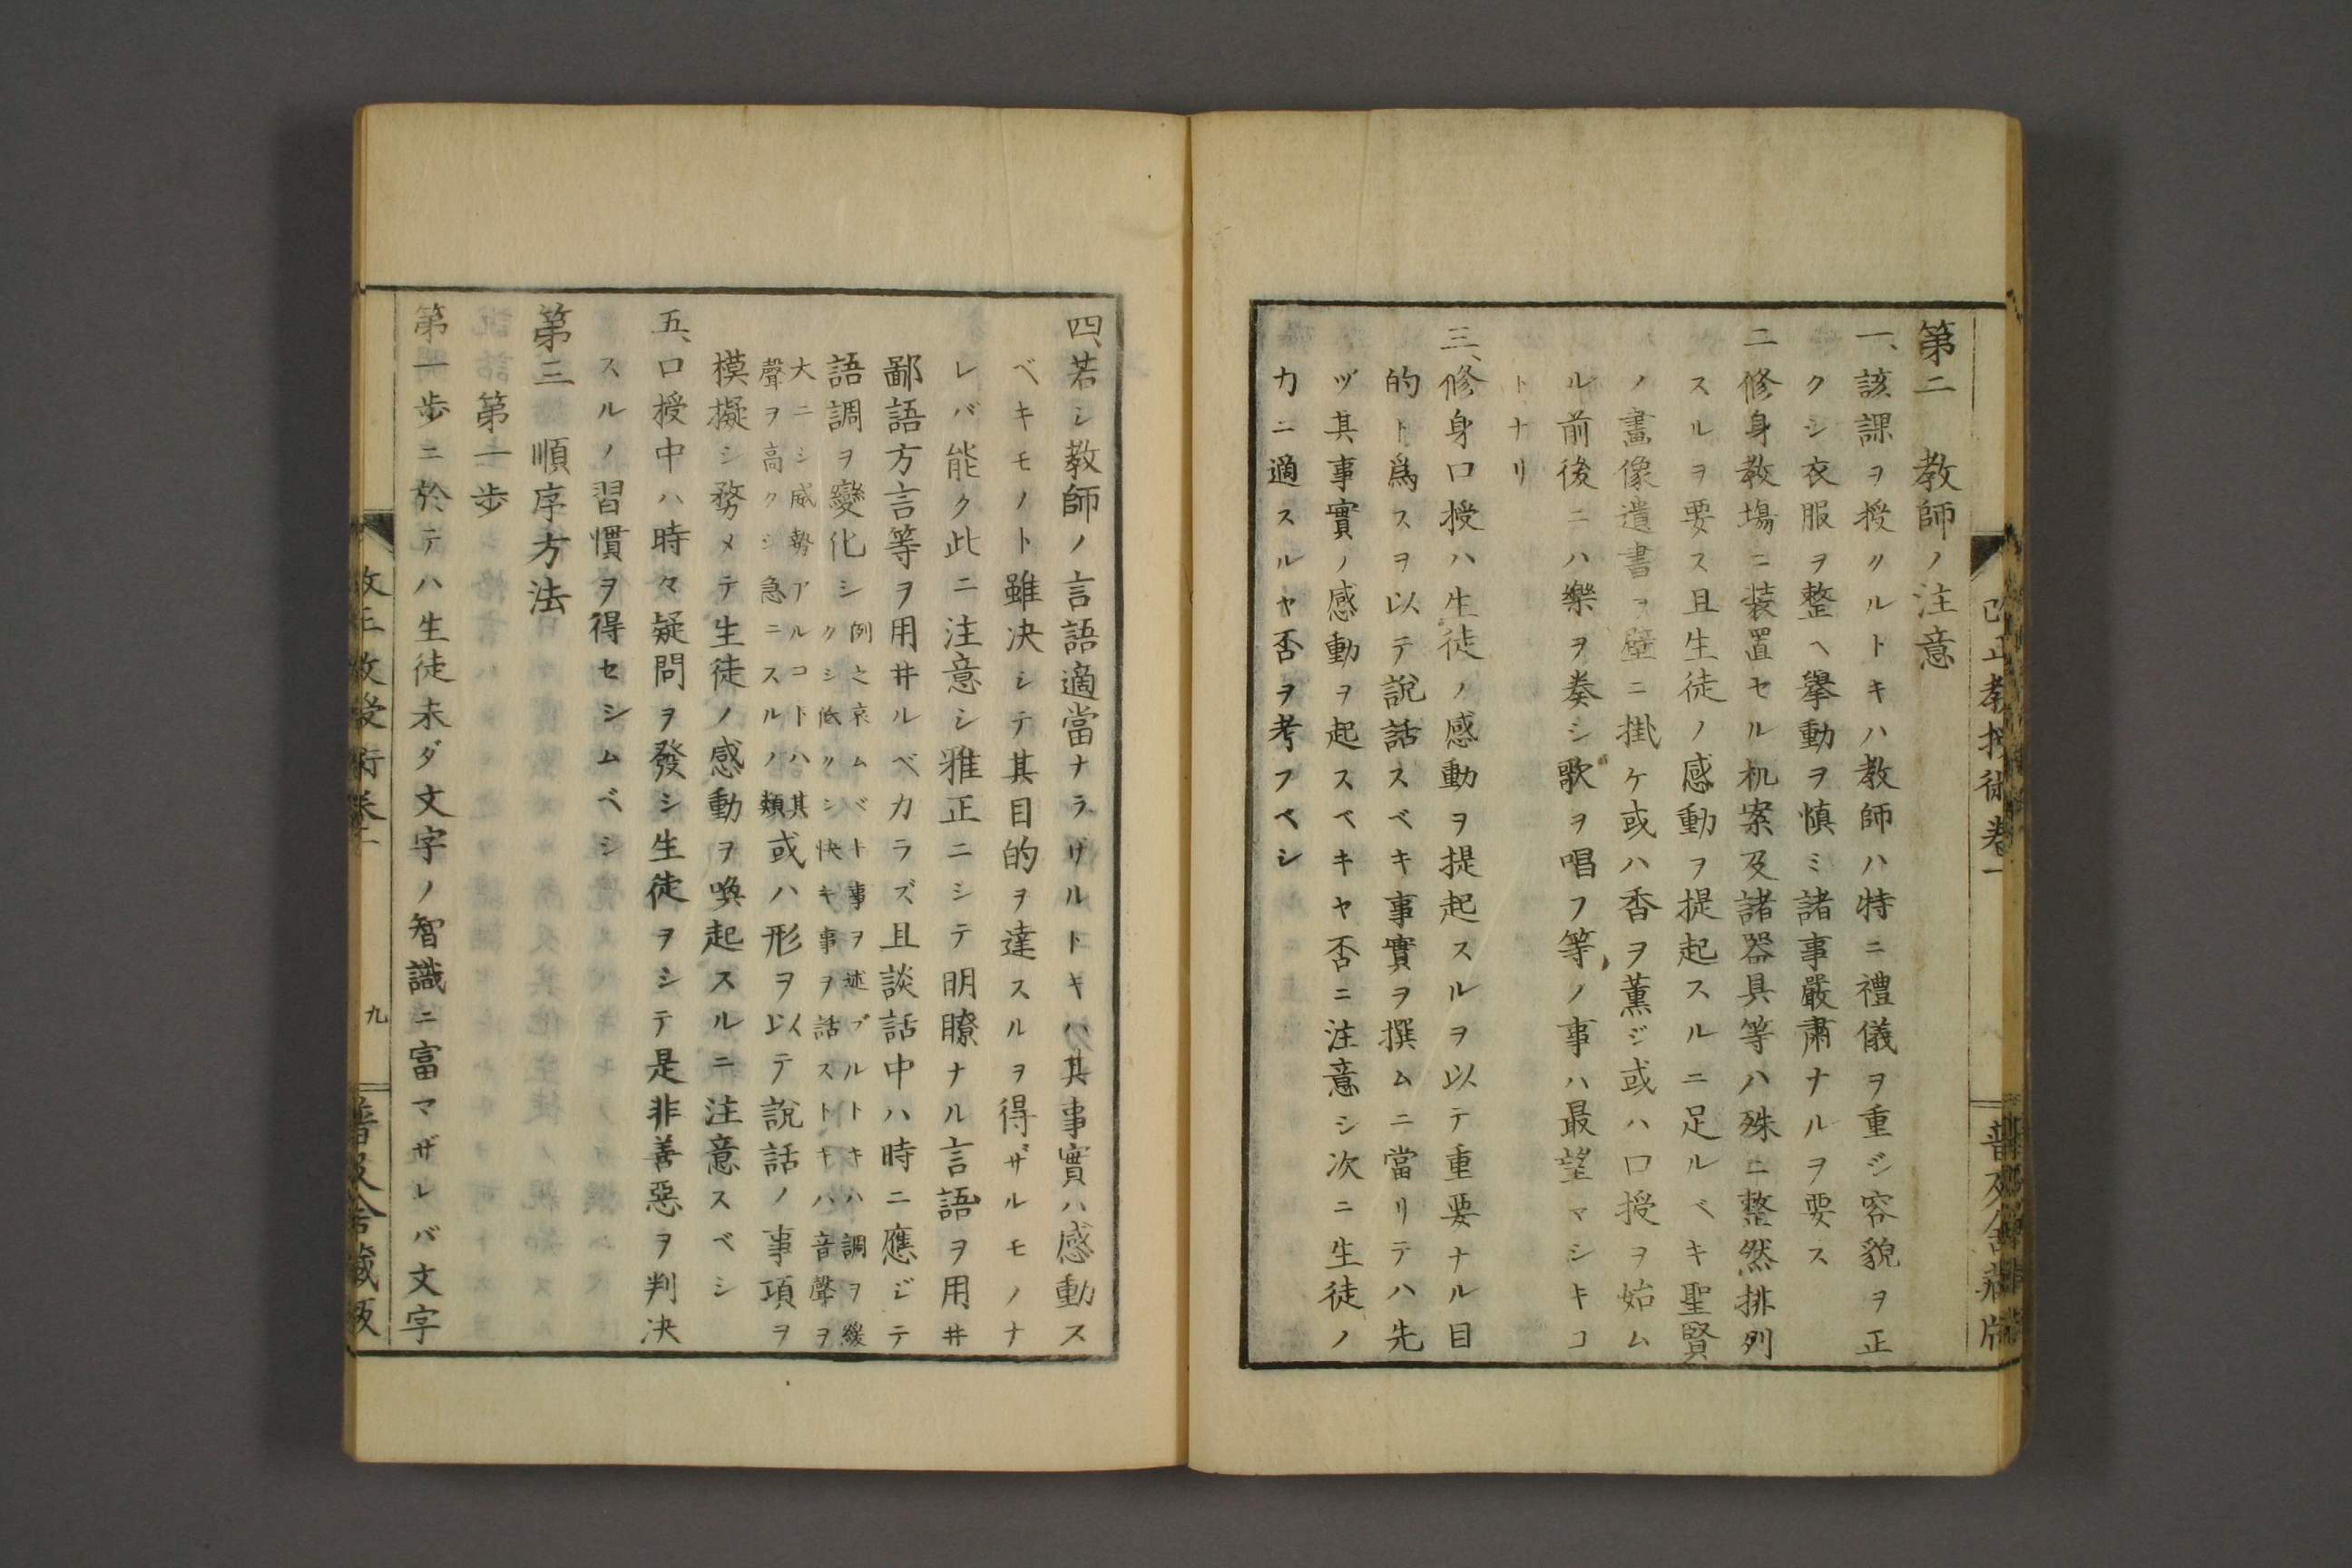 第二 教師ノ注意
一、該課ヲ授クルトキハ教師ハ特ニ禮儀ヲ重ジ容貌ヲ正
クシ衣服ヲ整ヘ擧動ヲ慎ミ諸事嚴肅ナルヲ要ス
二修身教塲ニ装置セル机案及諸器具等ハ殊ニ整然排列
スルヲ要ス且生徒ノ感動ヲ提起スルニ足ルベキ聖賢
ノ畫像遺書ヲ壁ニ掛ケ或ハ香ヲ薫ジ或ハ口授ヲ始ム
ル前後ニハ樂ヲ奏シ歌ヲ唱フ等ノ事ハ最望マシキコ
トナリ
三、修身口授ハ生徒ノ感動ヲ提起スルヲ以テ重要ナル目
的ト爲スヲ以テ說話スベキ事實ヲ撰ムニ當リテハ先
ヅ其事實ノ感動ヲ起スベキヤ否ニ注意シ次ニ生徒ノ
力ニ適スルヤ否ヲ考フベシ
四、若シ教師ノ言語適當ナラザルトキハ其事實ハ感動ス
ベキモノト雖决シテ其目的ヲ達スルヲ得ザルモノナ
レバ能ク此ニ注意シ雅正ニシテ明瞭ナル言語ヲ用井
鄙語方言等ヲ用井ルベカラズ且談話中ハ時ニ應ジテ
語調ヲ變化シ例之哀ムベキ事ヲ述ブルトキハ調ヲ緩
クシ低クシ快キ事ヲ話ストキハ音聲ヲ
大ニシ威勢アルコトハ其
聲ヲ高クシ急ニスルノ類或ハ形ヲ以テ說話ノ事項ヲ
模擬シ務メテ生徒ノ感動ヲ喚起スルニ注意スベシ
五、口授中ハ時々疑問ヲ發シ生徒ヲシテ是非善惡ヲ判决
スルノ習慣ヲ得セシムベシ
第三 順序方法
第一步
第一步ニ於テハ生徒未ダ文字ノ智識ニ富マザレバ文字
改正教授術卷一
九
普及舍藏版